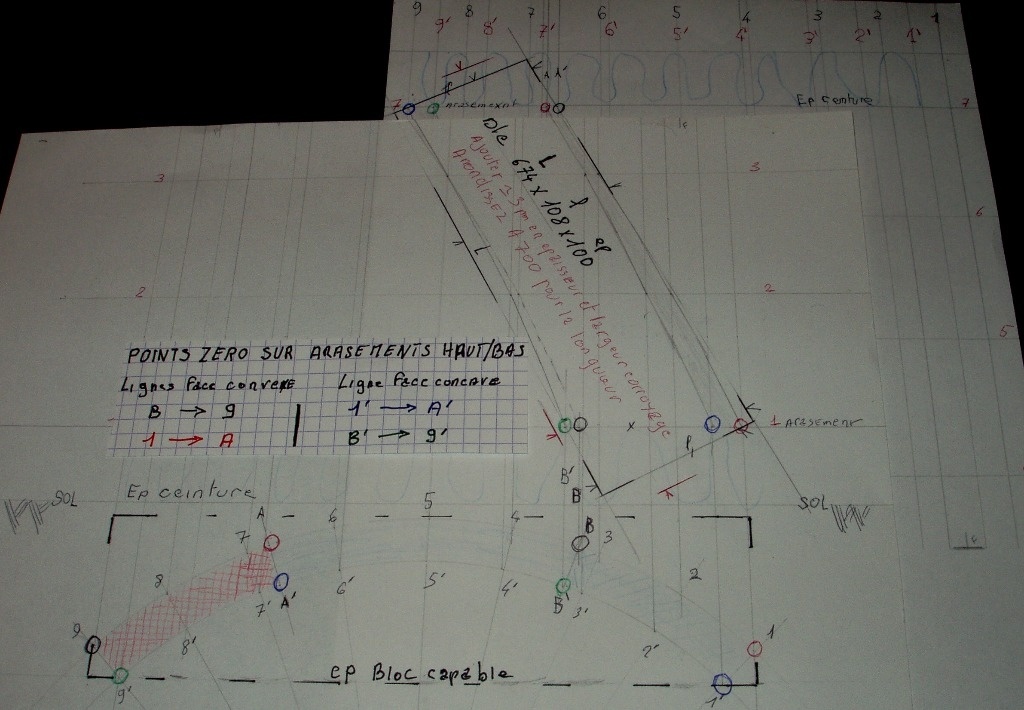 9 8 7 6 5 4 3 2 1
9' 8' 7' 6' 5' 4' 3' 2' 1'
Ep ceinture 7
7 arasement
3 3
6
Dle L l ep
674 x 108 x 100
Ajouter 3 5 m en epaisseur et largeur corroyage
Arrondissez A 700 pour la longueur
L
2 2
5
POINTS ZERO SUR ARASEMENTS HAUT/BAS
Lignes face convexe Ligne face concave
B → 9 1' → A'
1 → A B' → 9'
x
1 Arasement
l
B'
B
SOL Ep ceinture SOL
A 6 5 4 B
7 3
8 7' A' 6' 5' 4' B' 3' 2
9 8' 2' 1
9' ep Bloc capable 1'